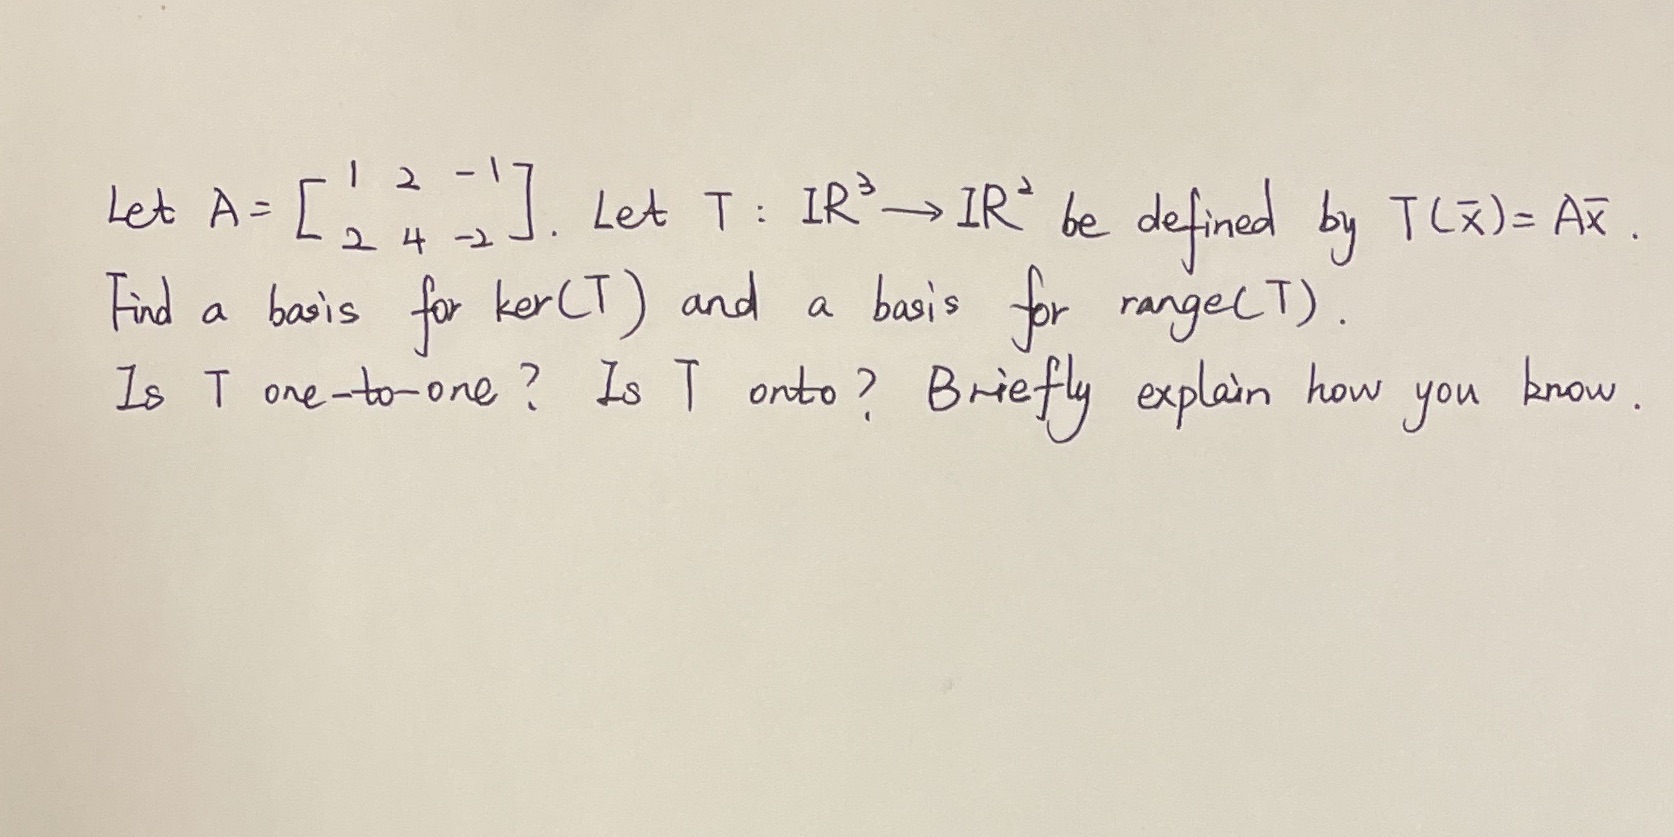 Let A = [1 2 -1; 2 4 -2]. Let T : ℝ³ → ℝ² be defined by T(x̄) = Ax̄.
Find a basis for ker(T) and a basis for range(T).
Is T one-to-one? Is T onto? Briefly explain how you know.